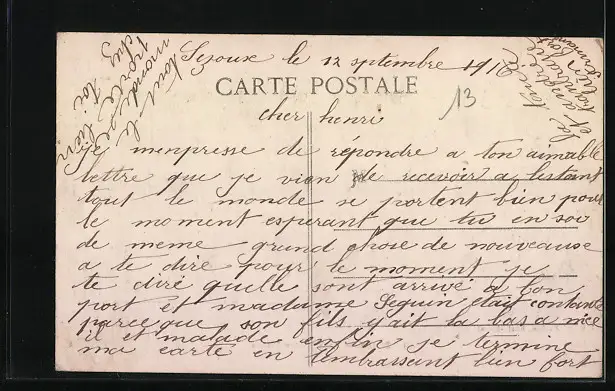 Lezoux le 12 septembre 1916
CARTE POSTALE
13
cher henri
je menpresse de répondre a ton aimable
lettre que je vien de recevoir a lestant
tout le monde se portent bien pour
le moment esperant que tu en soi
de meme grand chose de nouveause
a te dire pour le moment je
te dire quelle sont arrivé a bon
port et madame Seguin était contante
parce que son fils y ait la bas a nice
il et malade enfin je termine
ma carte en tembrassant bien fort
tout le
monde
porte
bien
toi